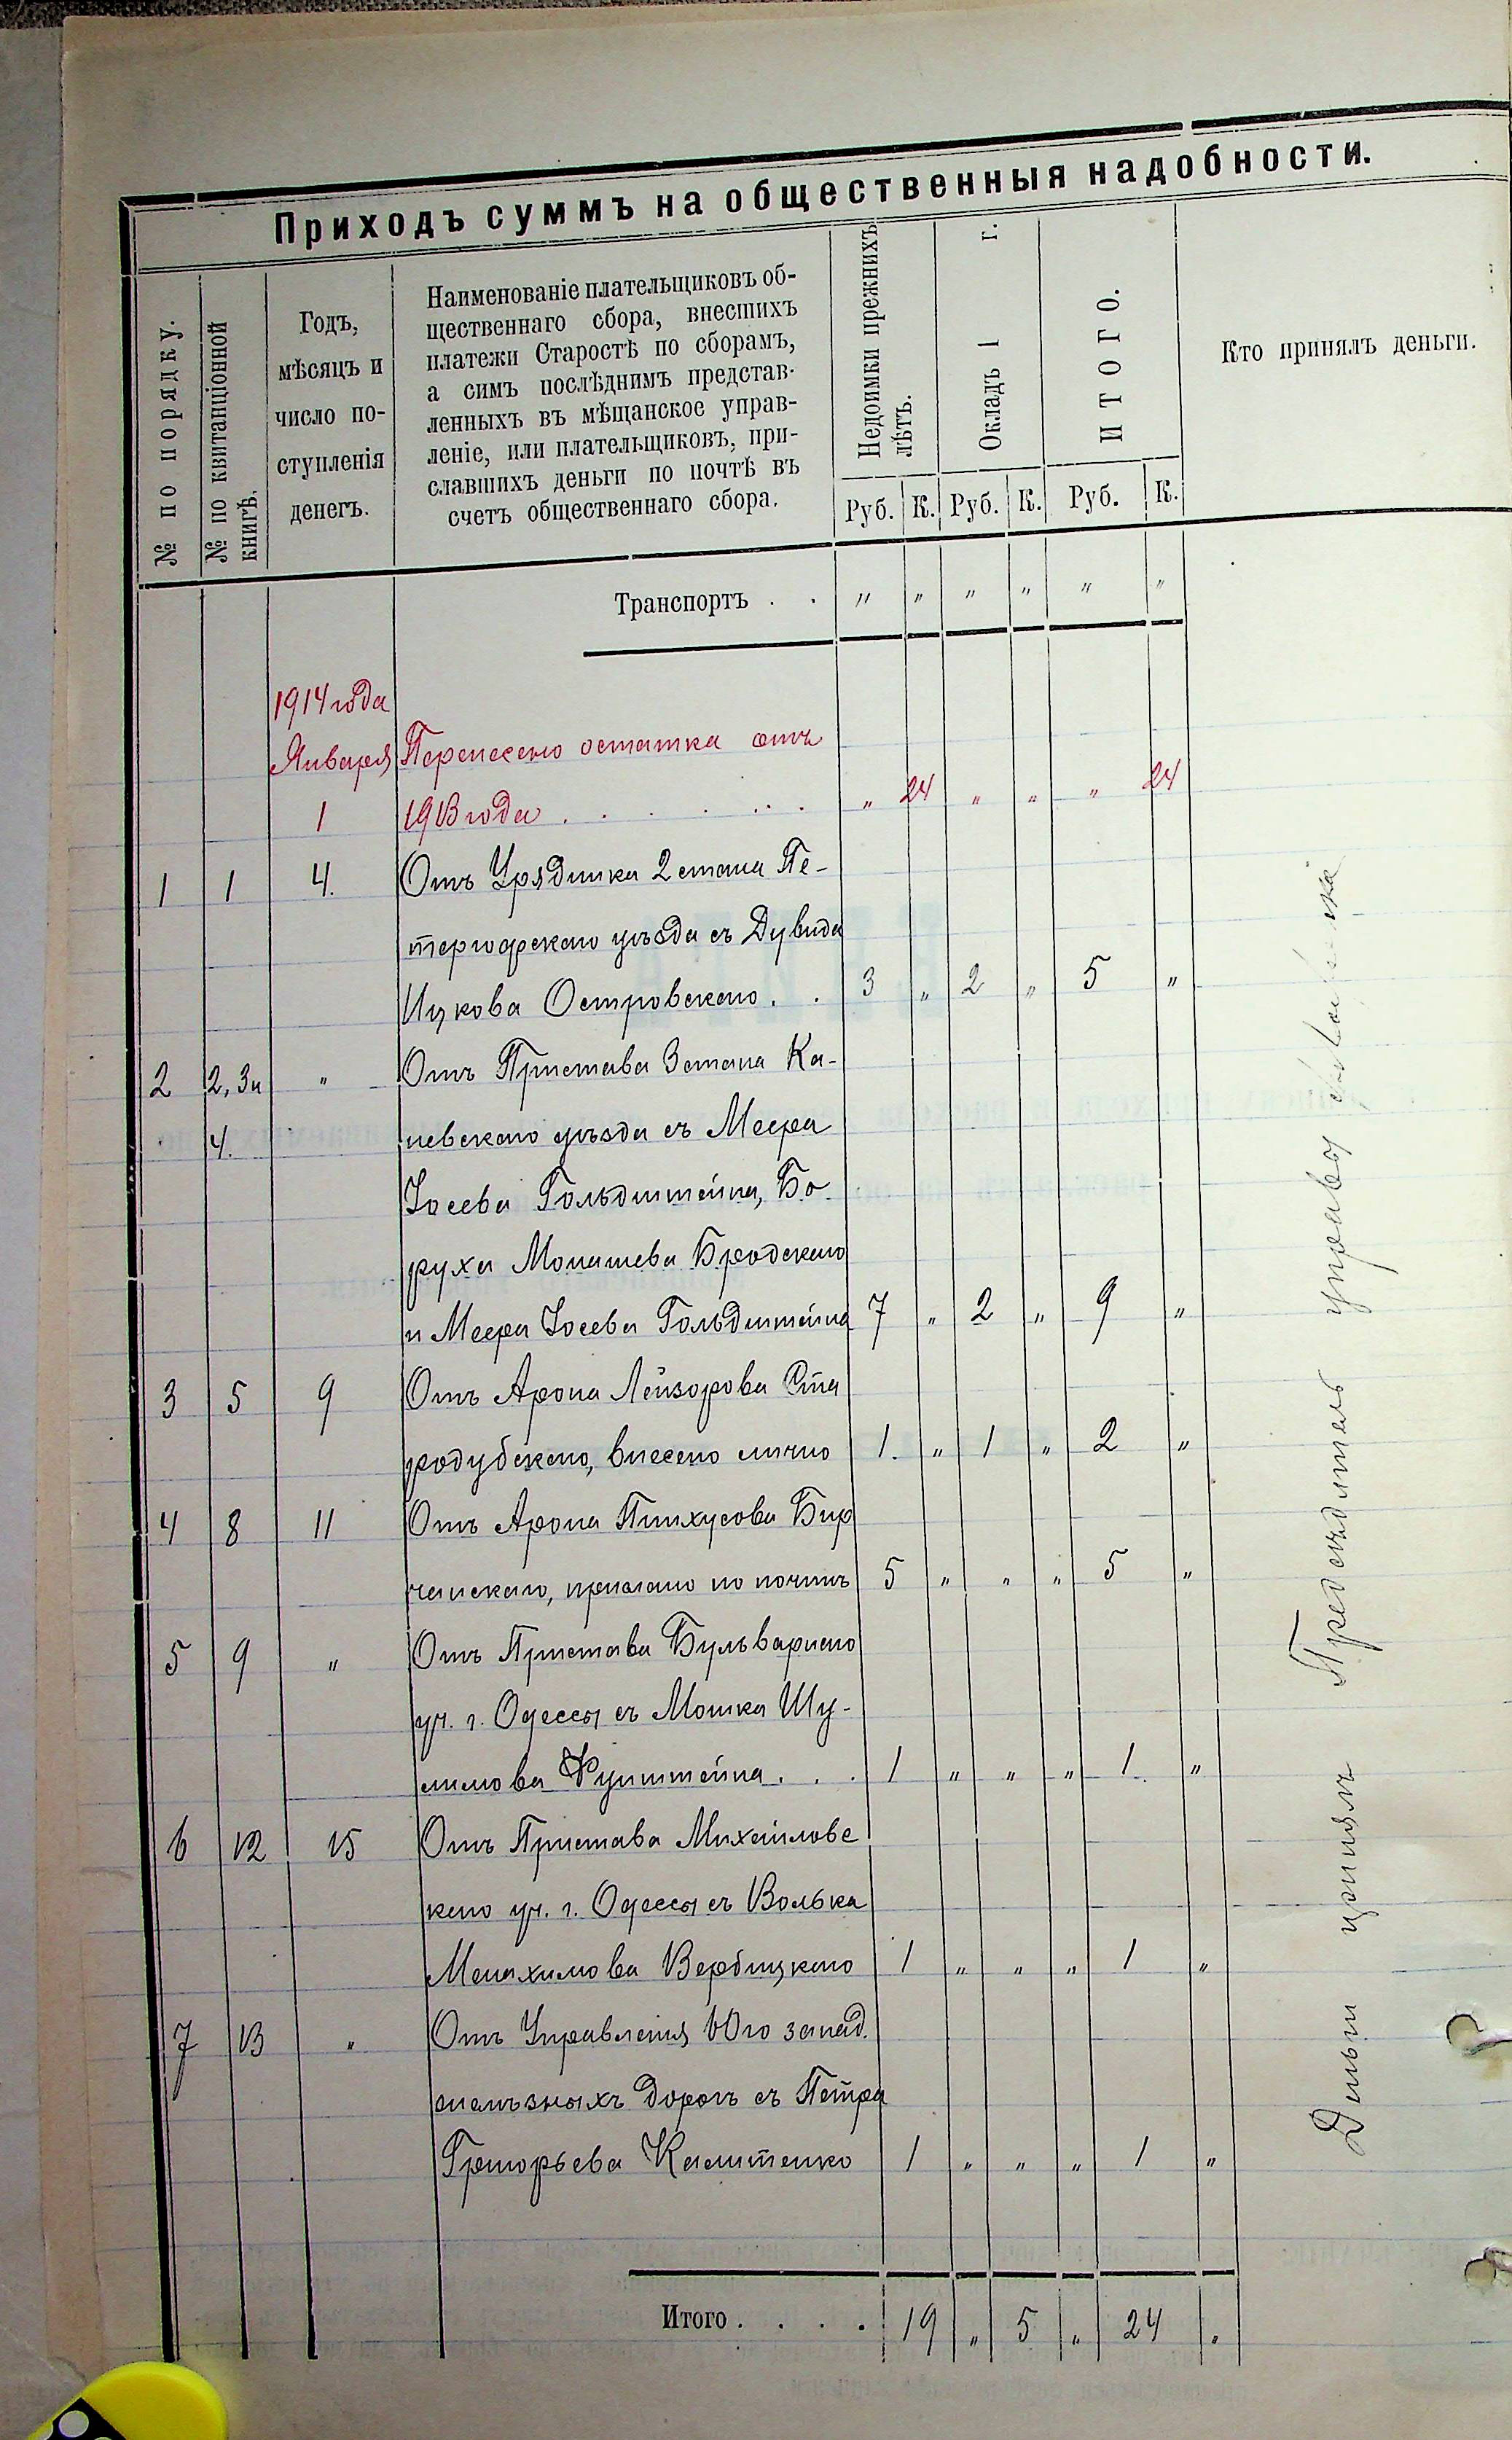 Приходъ суммъ на общественныя надобности.
№ по порядку.
№ по квитанціонной
книгѣ.
Годъ,
мѣсяцъ и
число по-
ступленія
денегъ.
Наименованіе плательщиковъ об-
щественнаго сбора, внесшихъ
платежи Старостѣ по сборамъ,
а симъ послѣднимъ представ-
ленныхъ въ мѣщанское управ-
леніе, или плательщиковъ, при-
славшихъ деньги по почтѣ въ
счетъ общественнаго сбора.
Недоимки прежнихъ
лѣтъ.
Окладъ 1 г.
ИТОГО.
Кто принялъ деньги.
Руб. К. Руб. К. Руб. К.
Транспортъ . . " " " " " "
1914 года
Января Перенесено остатка отъ
1 1913 года . . . . . . " 24 " " " 24
1 1 4. Отъ Урядника 2 стана Пе-
уѣзда съ Дувида
Ицкова Островскаго . . 3 " 2 " 5 "
2 2, 3 и " Отъ Пристава 3 стана Ка-
4. невскаго уѣзда съ Меера
Іосева Гольдштейна, Бо-
руха Монашева Бродскаго
и Меера Іосева Гольдштейна 7 " 2 " 9 "
3 5 9 Отъ Арона Лейзорова Ста
родубскаго, внесено лично 1. " 1 " 2 "
4 8 11 Отъ Арона Пинхусова Бир
чанскаго, прислано по почтѣ 5 " " " 5 "
5 9 " Отъ Пристава Бульварнаго
уч. г. Одессы съ Мошка Шу-
лимова . . . 1 " " " 1. "
6 12 15 Отъ Пристава Михайловс
каго уч. г. Одессы съ Волька
Менахимова Вербицкаго 1 " " " 1 "
7 13 " Отъ Управленія Юго запад.
желѣзныхъ дорогъ съ Петра
Григорьева Калитенко 1 " " " 1 "
Итого . . . . 19 " 5 " 24 "
Деньги принялъ Предсѣдатель управы